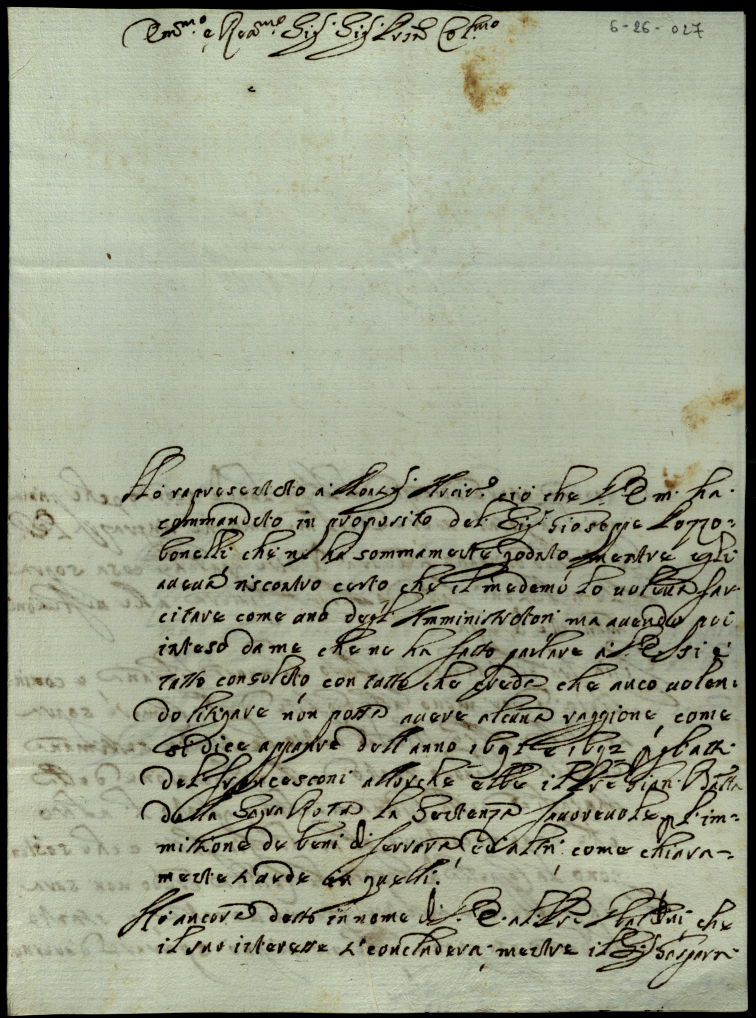 Em.mo e Rev.mo Sig.r Sig.r Pron Col.mo
6-26-027
Ho rapresentato a Mons.r Arciv.o ciò che V Em. ha
commandato in proposito del Sig.r Gioseppe Pozzo=
bonelli che ne ha sommamente goduto mentre egli
aveva riscontro certo che il medemo lo voleva far
citare come uno degl'Amministratori ma avendo poi
inteso da me che ne ha fatto parlare a V E si è
tutto consolato con tutto che creda che anco volen=
do litigare non possa avere alcuna raggione, come
si dice appaure dell'anno 1691 e 1692
del Francesconi allorche ebbe il Gian. Batta
della Sagra Rota la Sentenza favorevole p l'im=
missione de beni di Ferrara, ed altri come chiara=
mente vede in quelli.
Ho ancora detto in nome di V. E. al che
il suo interesse concluderà mentre il Sig.r Gasparri